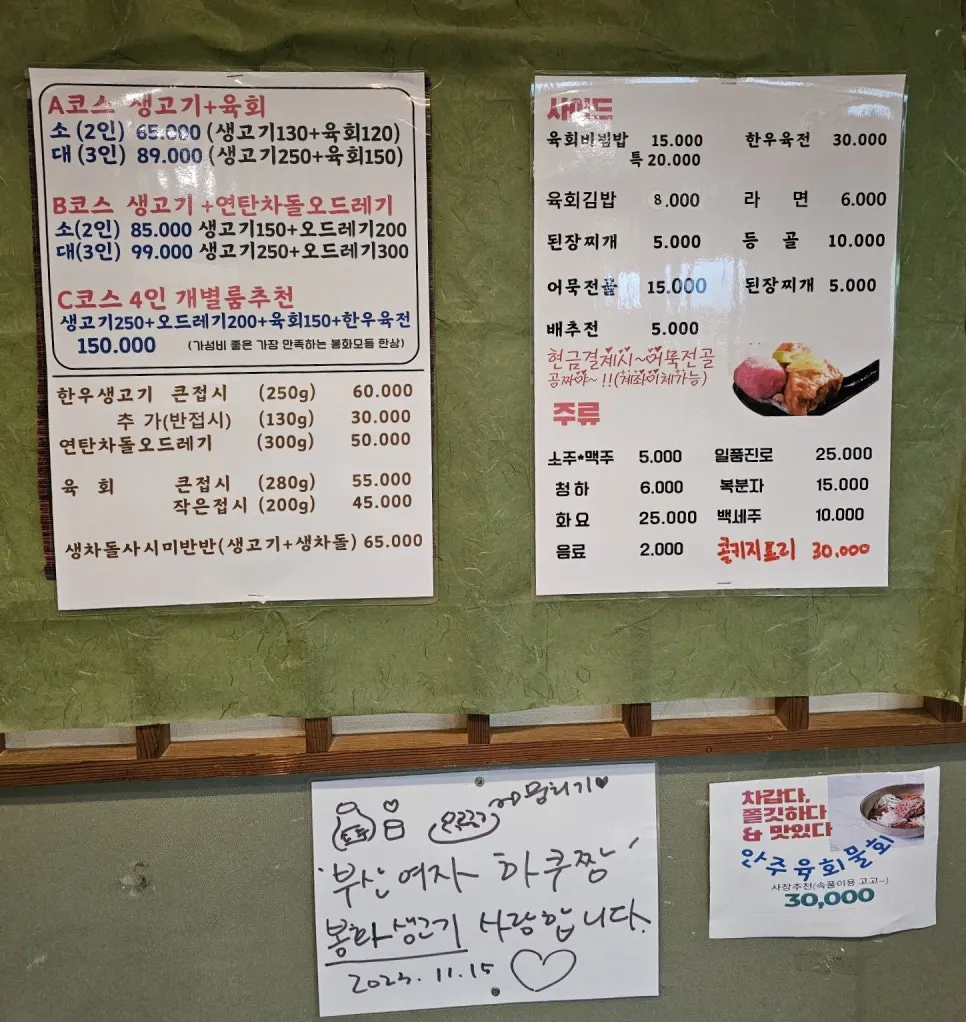 A코스 생고기+육회
소 (2인) 65.000 (생고기130+육회120)
대 (3인) 89.000 (생고기250+육회150)
B코스 생고기+연탄차돌오드레기
소(2인) 85.000 생고기150+오드레기200
대(3인) 99.000 생고기250+오드레기300
C코스 4인 개별룸추천
생고기250+오드레기200+육회150+한우육전
150.000 (가성비 좋은 가장 만족하는 봉화모듬 한상)
한우생고기 큰접시 (250g) 60.000
추 가(반접시) (130g) 30.000
연탄차돌오드레기 (300g) 50.000
육 회 큰접시 (280g) 55.000
작은접시 (200g) 45.000
생차돌사시미반반(생고기+생차돌) 65.000
사이드
육회비빔밥 15.000 한우육전 30.000
특 20.000
육회김밥 8.000 라 면 6.000
된장찌개 5.000 등 골 10.000
어묵전골 15.000 된장찌개 5.000
배추전 5.000
현금결제시~어묵전골
공짜야~!!(계좌이체가능)
주류
소주*맥주 5.000 일품진로 25.000
청하 6.000 복분자 15.000
화요 25.000 백세주 10.000
음료 2.000 콜키지프리 30.000
부산여자 하쿠짬
봉화생고기 사랑합니다.
2023.11.15
차갑다,
쫄깃하다
& 맛있다
안주육회물회
사장추천(속풀이용 고고~)
30,000